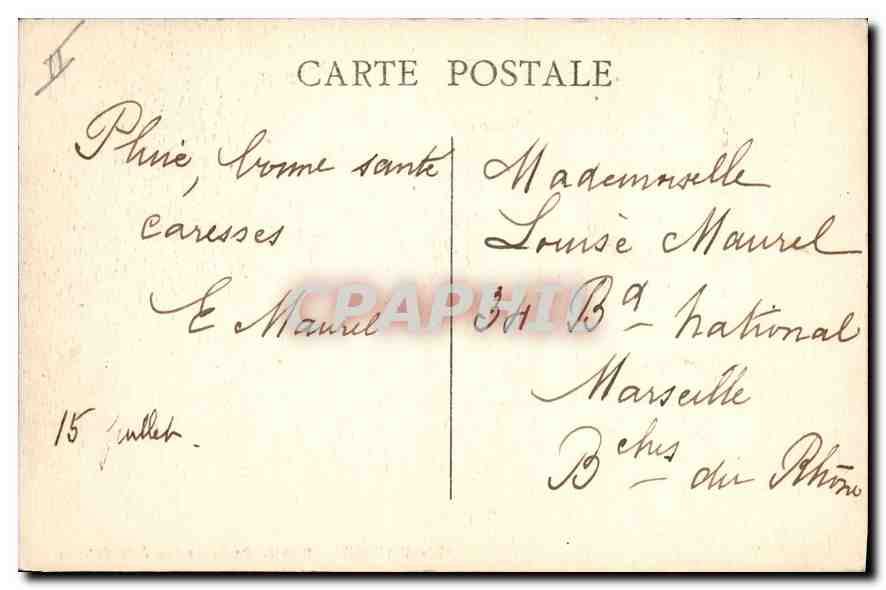 II
CARTE POSTALE
Pluie, bonne santé
caresses
E Maurel
15 juillet.
Mademoiselle
Louise Maurel
Bd National
Marseille
Bches du Rhône
CPAPHIL